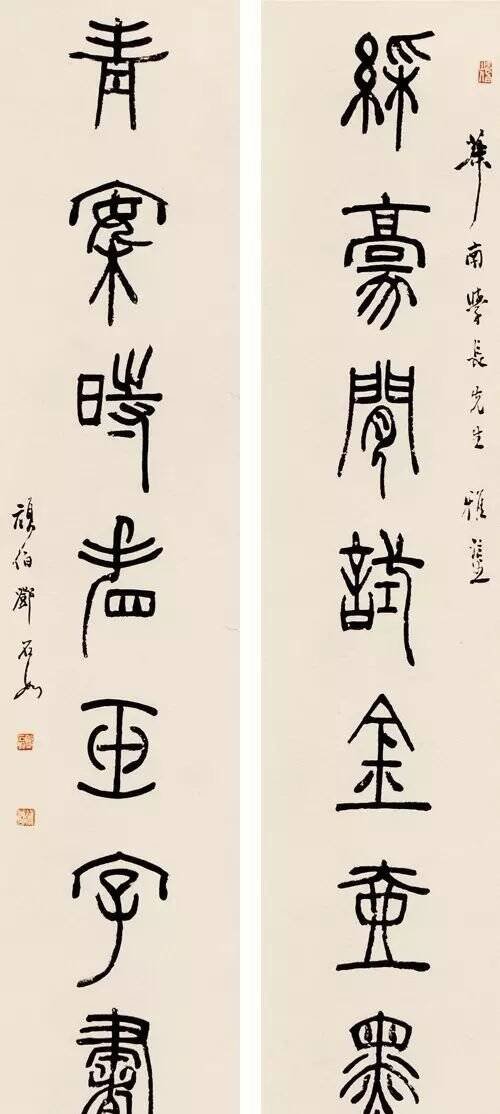 南學長先生 雅鑒
綵豪閒試金壺墨
青案時看玉字書
頑伯鄧石如